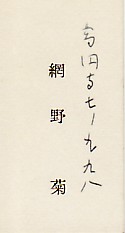 高円寺七ノ九九八
網野菊